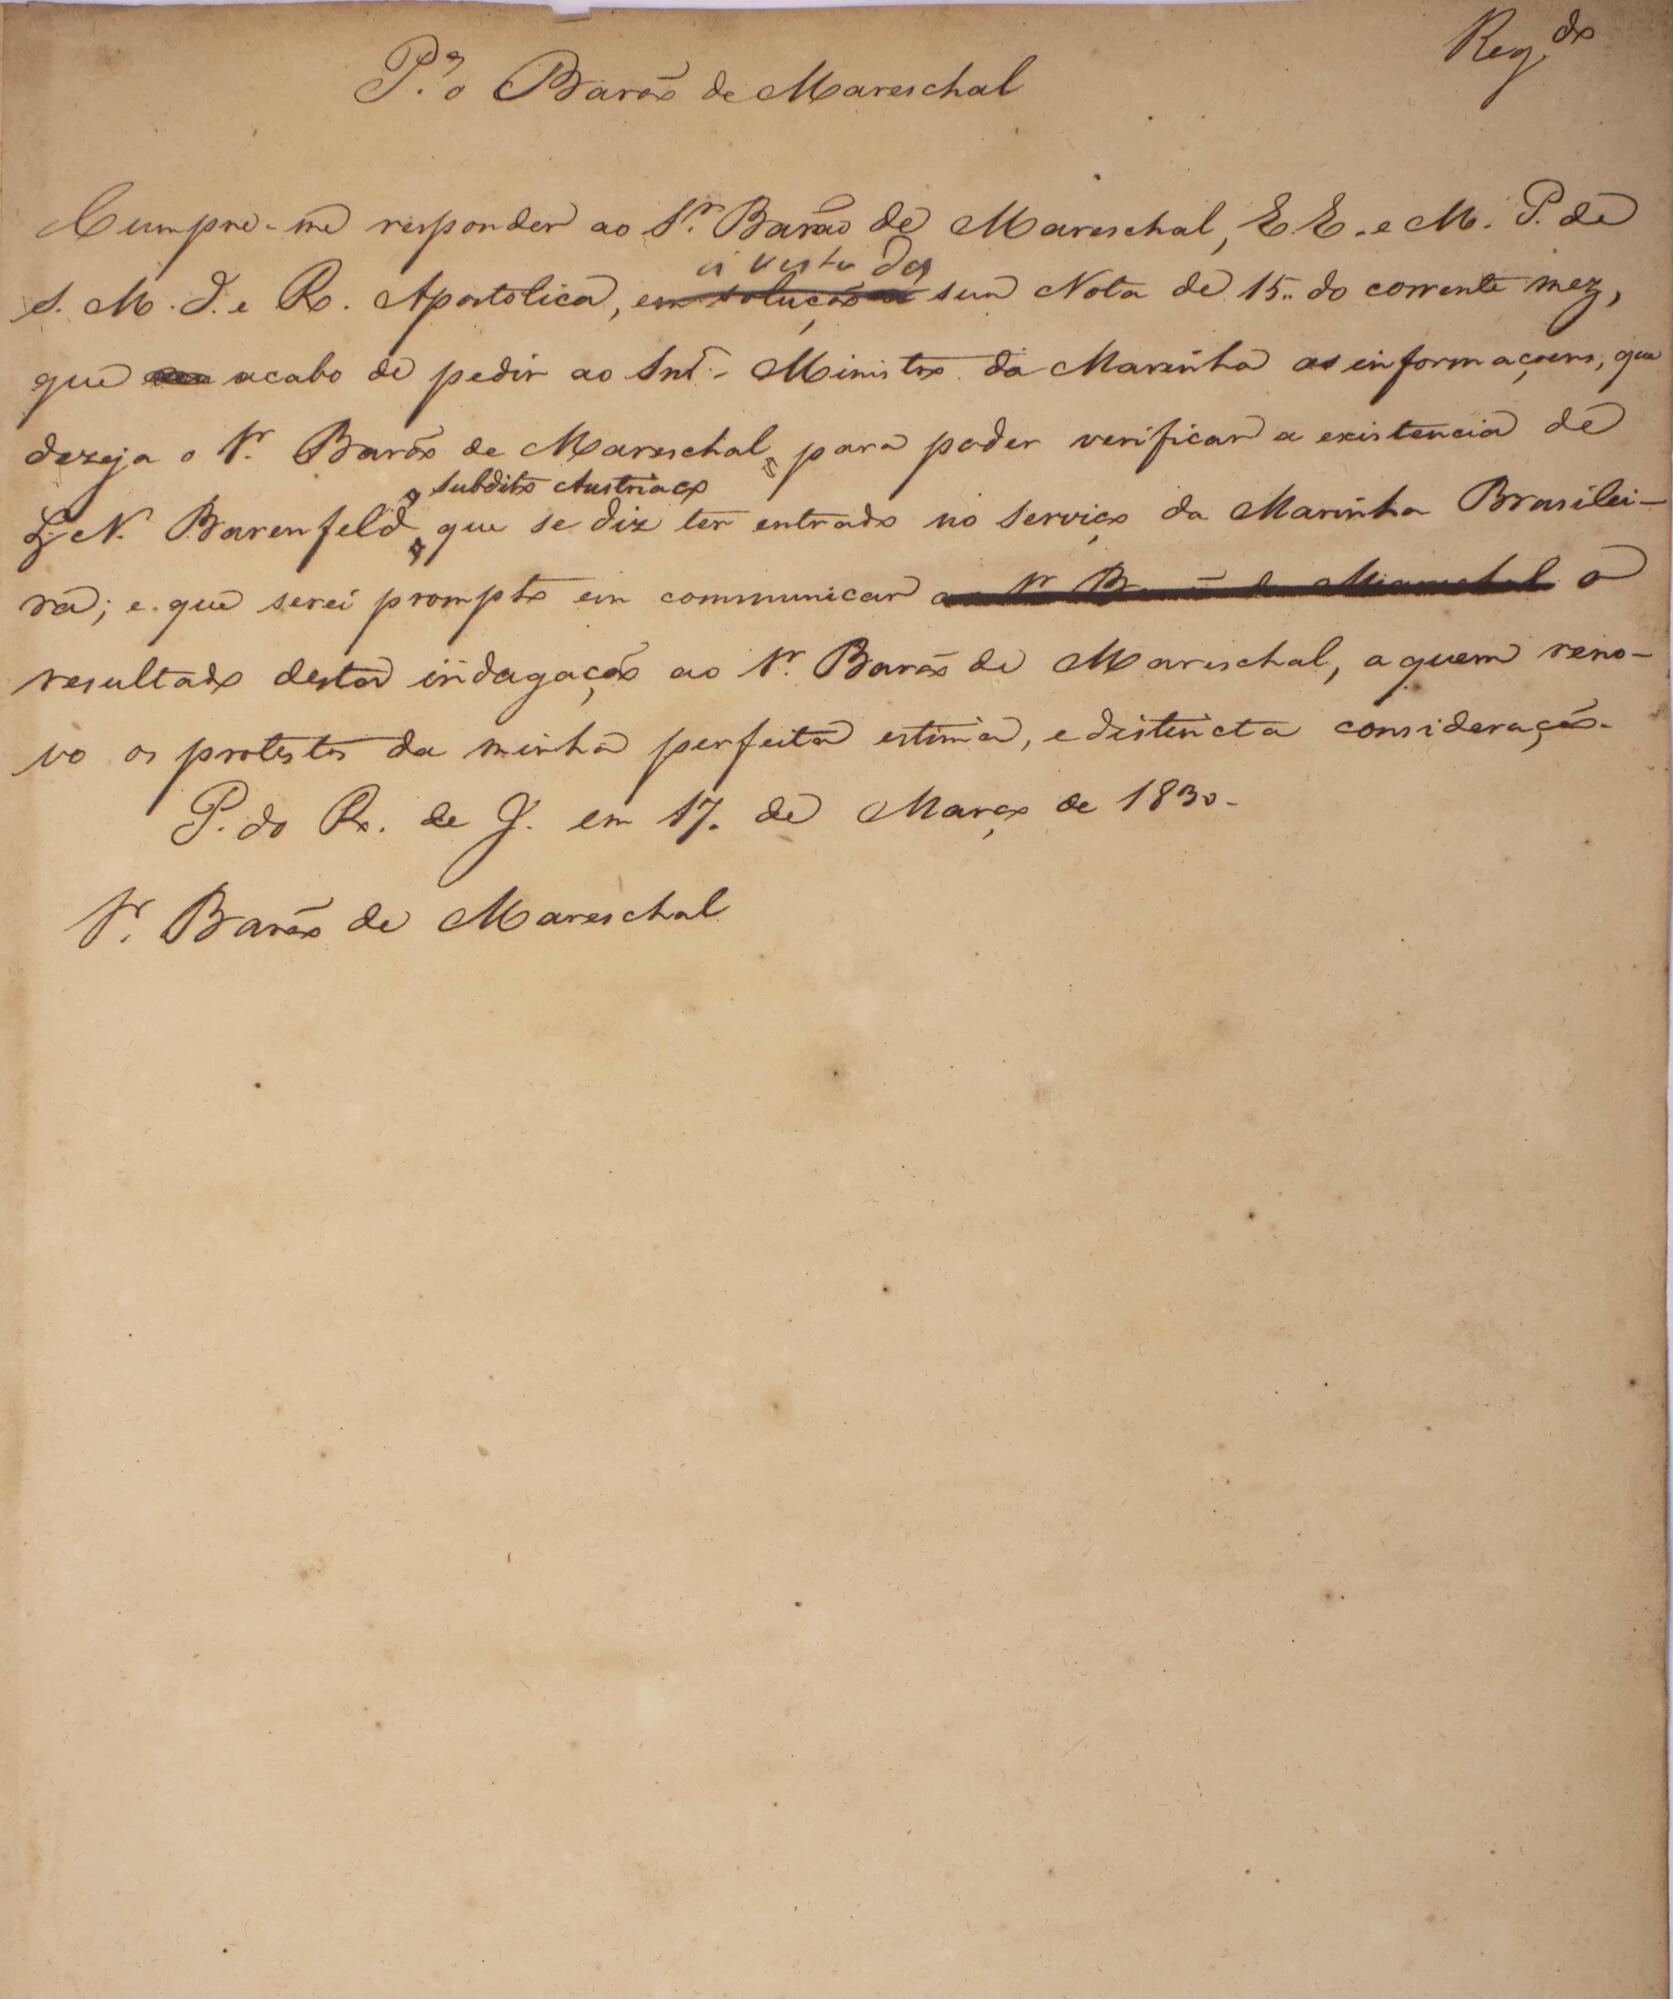 Reg.do
P.a o Barão de Mareschal
Cumpre-me responder ao Sr. Barão de Mareschal, E. E. e M. P. de
á vista da
S. M. I. e R. Apostolica, em solução a sua Nota de 15.. do corrente mez,
que acabo de pedir ao Snr. Ministro da Marinha as informaçoens, que
dezeja o Sr. Barão de Mareschal, para poder verificar a existencia de
subdito Austriaco
N. Barenfeld, que se diz ter entrado no serviço da Marinha Brasilei-
ra; e que serei prompto em communicar ao Sr. Barão de Mareschal o
resultado desta indagação ao Sr. Barão de Mareschal, a quem reno-
vo os protestos da minha perfeita estima, e distincta consideração.
P. do R. de J. em 17. de Março de 1830-
Sr. Barão de Mareschal